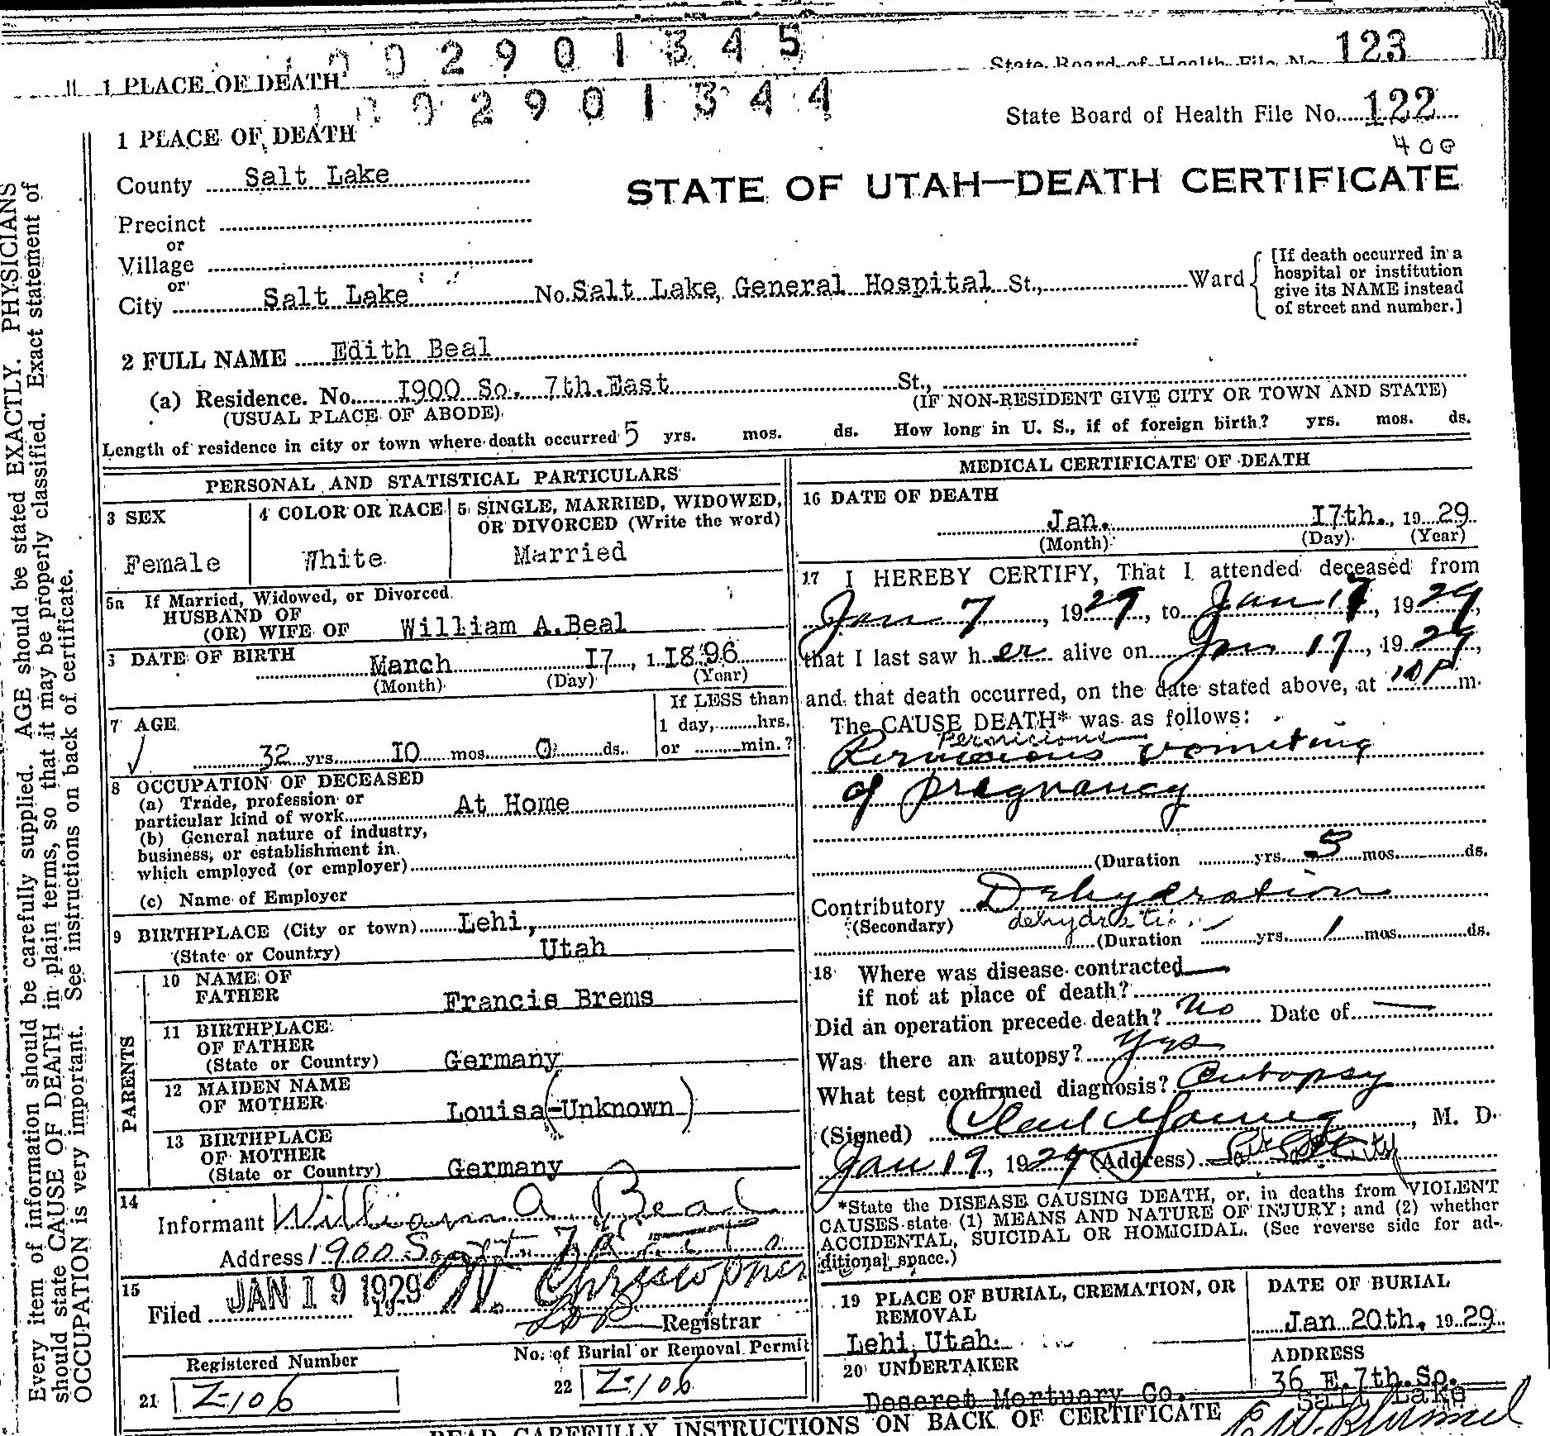 0 0 2 9 0 1 3 4 5
State Board of Health File No. 123
1 PLACE OF DEATH
0 0 2 9 0 1 3 4 4
State Board of Health File No. 122
400
1 PLACE OF DEATH
County Salt Lake
STATE OF UTAH—DEATH CERTIFICATE
Precinct
or
Village
or
City Salt Lake No. Salt Lake General Hospital St., Ward
[If death occurred in a
hospital or institution
give its NAME instead
of street and number.]
2 FULL NAME Edith Beal
(a) Residence. No. I900 So. 7th.East St.,
(USUAL PLACE OF ABODE) (IF NON-RESIDENT GIVE CITY OR TOWN AND STATE)
Length of residence in city or town where death occurred 5 yrs. mos. ds. How long in U. S., if of foreign birth? yrs. mos. ds.
PERSONAL AND STATISTICAL PARTICULARS
3 SEX
Female
4 COLOR OR RACE
White
5 SINGLE, MARRIED, WIDOWED,
OR DIVORCED (Write the word)
Married
5a If Married, Widowed, or Divorced
HUSBAND OF
(OR) WIFE OF William A.Beal
DATE OF BIRTH March I7, 1 I896
(Month) (Day) (Year)
7 AGE
32 yrs. IO mos. 0 ds.
If LESS than
1 day, hrs.
or min.?
8 OCCUPATION OF DECEASED
(a) Trade, profession or
particular kind of work At Home
(b) General nature of industry,
business, or establishment in
which employed (or employer)
(c) Name of Employer
9 BIRTHPLACE (City or town) Lehi,
(State or Country) Utah
PARENTS
10 NAME OF
FATHER Francis Brems
11 BIRTHPLACE
OF FATHER
(State or Country) Germany
12 MAIDEN NAME
OF MOTHER Louisa (-Unknown)
13 BIRTHPLACE
OF MOTHER
(State or Country) Germany
14
Informant William A. Beal
Address 1900 South 7 East
15
Filed JAN 19 1929 19
Registrar
Registered Number
21 Z-106
No. of Burial or Removal Permit
22 Z-106
MEDICAL CERTIFICATE OF DEATH
16 DATE OF DEATH
Jan. I7th., 19 29
(Month) (Day) (Year)
17 I HEREBY CERTIFY, That I attended deceased from
Jan 7, 1929, to Jan 17, 1929,
that I last saw her alive on Jan 17, 1929,
and that death occurred, on the date stated above, at 10 P m.
The CAUSE DEATH* was as follows:
Pernicious
Pernicious vomiting
of pregnancy
(Duration yrs. 3 mos. ds.
Contributory Dehydration
(Secondary) dehydration
(Duration yrs. 1 mos. ds.
18 Where was disease contracted
if not at place of death?
Did an operation precede death? No Date of
Was there an autopsy? Yes
What test confirmed diagnosis? Autopsy
(Signed) M. D.
Jan 19, 1929 (Address)
*State the DISEASE CAUSING DEATH, or, in deaths from VIOLENT
CAUSES state (1) MEANS AND NATURE OF INJURY; and (2) whether
ACCIDENTAL, SUICIDAL OR HOMICIDAL. (See reverse side for ad-
ditional space.)
19 PLACE OF BURIAL, CREMATION, OR
REMOVAL
Lehi, Utah.
DATE OF BURIAL
Jan 20th. 19 29
20 UNDERTAKER
Deseret Mortuary Co.
ADDRESS
36 E. 7th.So.
Salt Lake
READ CAREFULLY INSTRUCTIONS ON BACK OF CERTIFICATE
Every item of information should be carefully supplied. AGE should be stated EXACTLY. PHYSICIANS
should state CAUSE OF DEATH in plain terms, so that it may be properly classified. Exact statement of
OCCUPATION is very important. See instructions on back of certificate.